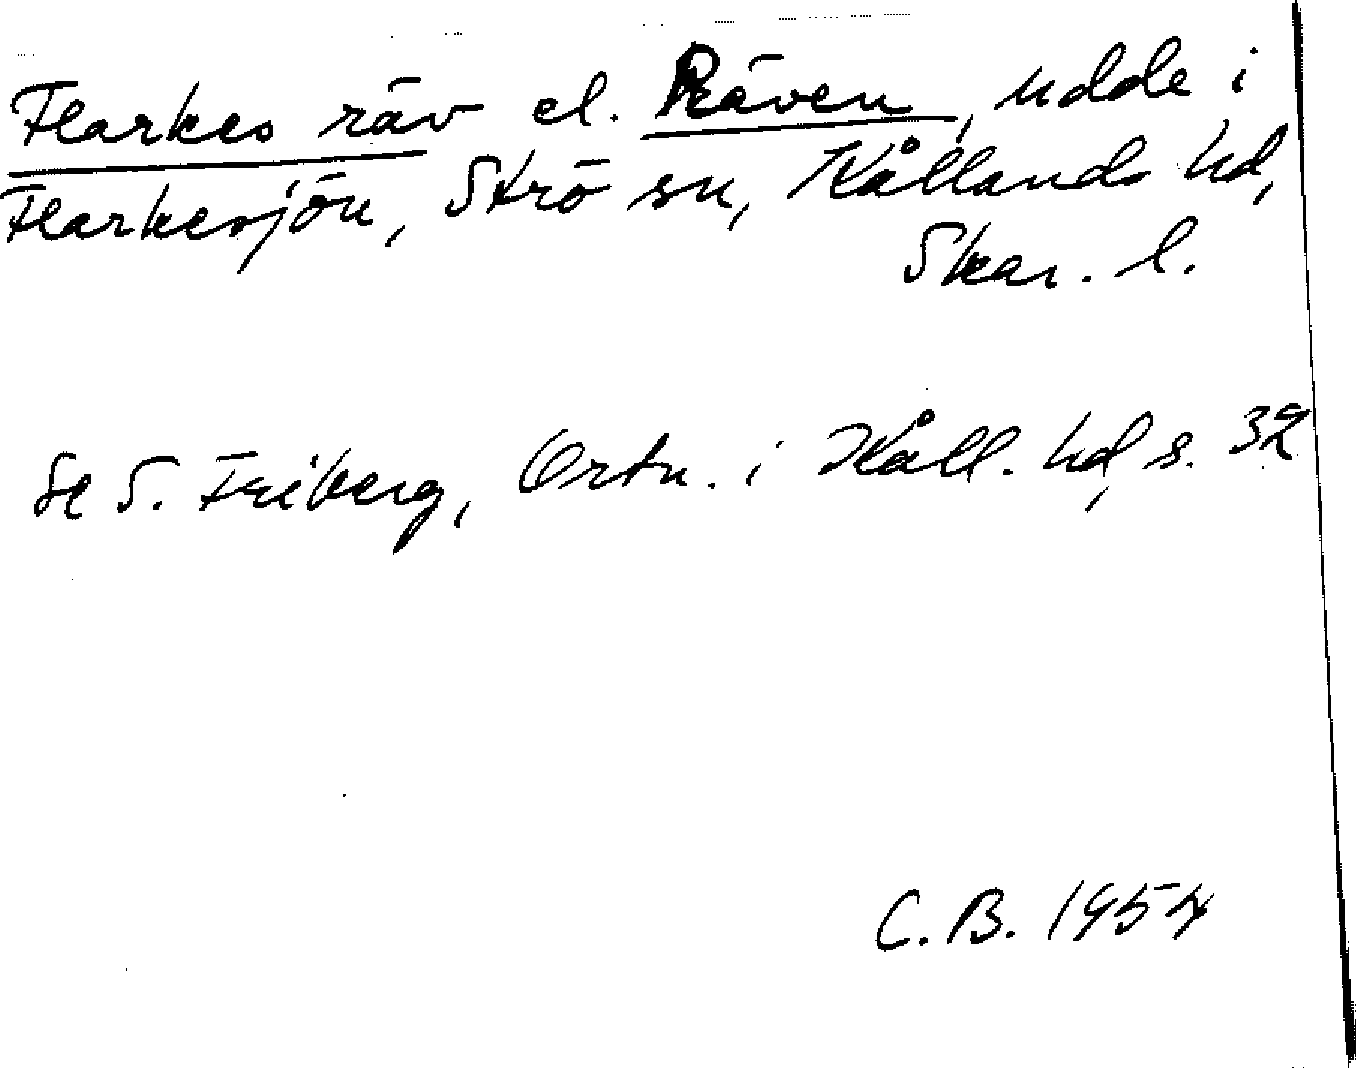 Flarkes räv el. Räven, udde i
Flarkesjön, Strö sn, Kållands hd,
Skar. l.
Se S. Friberg, Ortn. i Kåll. hd, s. 32
C.B. 1954